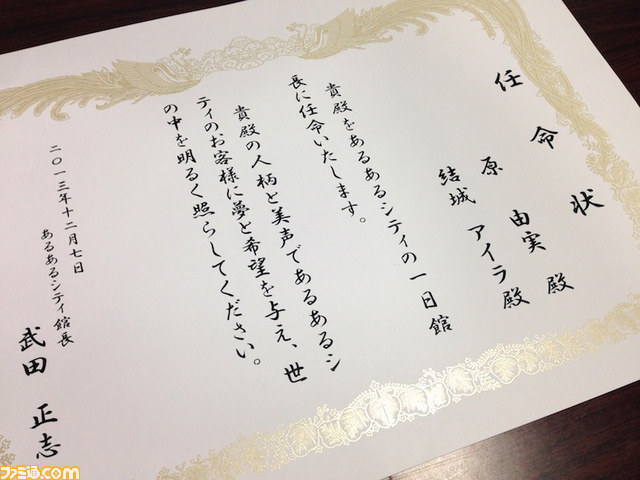 任命状
原 由実 殿
結城 アイラ 殿
貴殿をあるあるシティの一日館
長に任命いたします。
貴殿の人柄と美声であるあるシ
ティのお客様に夢と希望を与え、世
の中を明るく照らしてください。
二〇一三年十二月七日
あるあるシティ館長
武田 正志
ファミ通.com